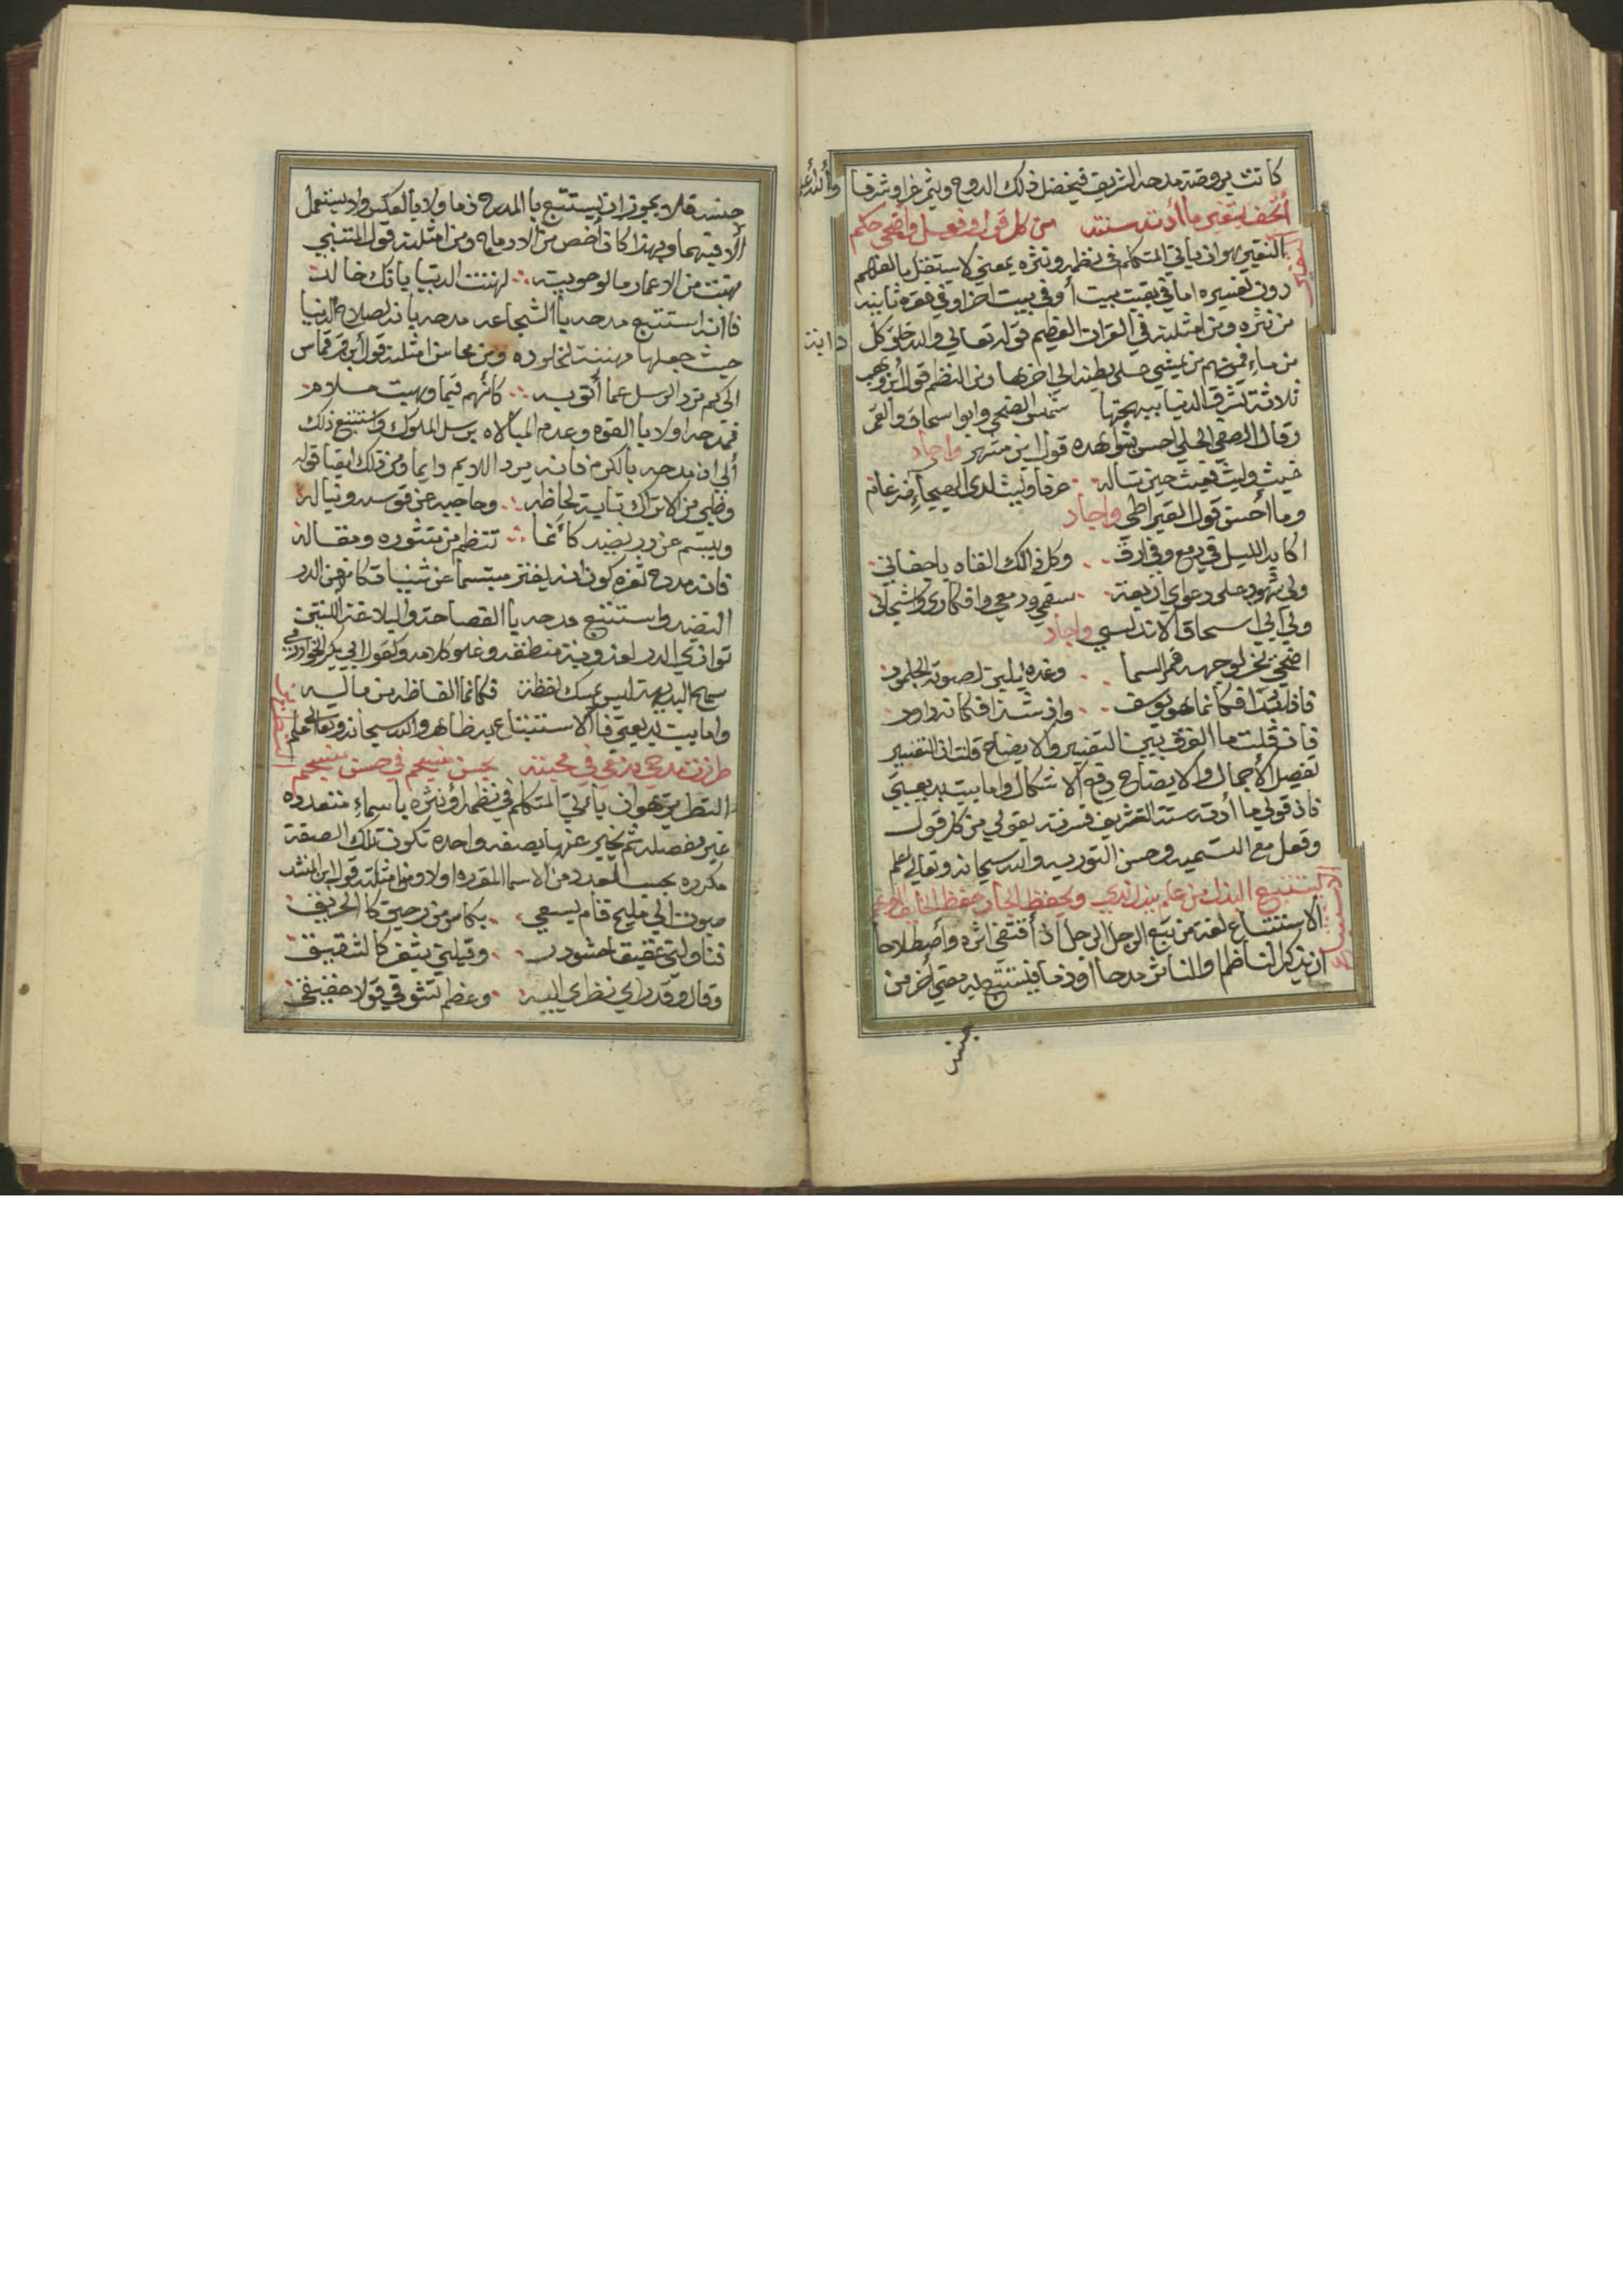 كانت بروضة مدحه الشريف فيخضل ذلك الدوح ويثمر غرا وشرفا والله أعلم
أتحف بتفسير ما أدته سنته من كل قول وفعل واضحي حكم
التفسير
التفسير هو ان يأتي المتكلم في نظمه ونثره بمعني لا يستقل بالفهم
دون تفسيره اما في بقيت بيت أو في بيت اخر او في فقره ثانيه
من نثره ومن امثلته في القران العظيم قوله تعالي والله خلق كل دابة
من ماء فمنهم من يمشي علي بطنه الي اخرها ومن النظم قول ابن وهيب
ثلاثة تشرق الدنيا ببهجتها شمس الضحي وابوا سحاق والقمر
وقال الصفي الحلي احسن شواهده قول ابن مسهر واجاد
غيث وليث فغيث حين تساله عرفا وليث لدي الهيجآء ضرغام
وما أحسن قول القيراطي واجاد
اكابد الليل في دمع وفي ارق وكل ذالك القاه باجفاني
ولي شهود علي دعواي اربعة سقمي ودمعي وافكاري واشجاني
ولي ابي اسحاق الاندلسي واجاد
اضحي يخر لوجهه قمر السما وغدا يلين لصوته الجلمود
فاذا بدا فكانما هو يوسف واذ شدا فكانه داود
فان قلت ما الفرق بين التفسير والايضاح قلت ان التفسير
تفصيل الاجمال والايضاح رفع الاشكال واما بيت بديعيتي
فان قولي ما أدته سنته الشريف فسرته بقولي من كل قول
وفعل مع التسميه وحسن التوريه والله سبحانه وتعالي اعلم
يستتبع البذل من علم ببذل ندي ويحفظ الجار حفظ
الاستتباع
الاستتباع لغة من تبع الرجل الرجل اذا أقتفي اثره وأصطلاحا
ان يذكر الناظم والناثر مدحا او ذما فيستتبع به معني أخر من
جنسه
جنسه فلا يجوز ان يستتبع بالمدح ذما ولا بالعكس ولا يستعمل
ألا فيهما وبهذا كان أخص من الادماج ومن امثلته قول المتنبي
نهبت من الاعمار ما لو حويته لهنئت الدنيا بانك خالد
فاانه استتبع مدحه باالشجاعه مدحه بانه لصلاح الدنيا
حيث جعلها مهنئة لخلوده ومن محاسن امثلته قول أبن قرقماس
الي كم ترد الرسل عما أتو به كانهم فيما وهبت ملام
فمدحه اولا باالقوه وعدم المبالاه برسل الملوك واستتبع ذلك
ألي ان مدحه باالكرم فانه يرد اللايم دايما ومن ذلك ايضا قوله
وظبي من الاتراك لحاظه وحاجبه عن قوسه ونباله
ويبسم عن در نضيد كأنما تنظم من منثوره ومقاله
فانه مدح ثغره كونه انه يفتر مبتسما عن الدر
النضيد واستتبع مدحه باالفصاحة والبلاغة اللتين
توازي الدر لعذوبة منطقه وعلو كلامه وكقول ابي بكر الخوارزمي
سمح البديهة ليس يمسك لفظه فكانما الفاظه من ماله
واما بيت بديعيتي فاالاستتباع به ظاهر والله سبحانه وتعالي اعلم
التطريز
طرزت مدحي في محبته بحسن منسجم في حسن منسجم
التطريز هو ان يأتي المتكلم في نظمه او نثره باسماء متعدده
غير مفصله ثم يخبر عنها بصفه واحده تكون تلك الصفة
مكرره بحسب العدد من الاسما المقرره اولا ومن امثلته قول ابن
صبوت الي مليح قام يسعي بكاس من رحيق كا الحريق
فناولني عقيقا حشودر وقبلني بثغر كا لشقيق
وقال وقد راي نظري اليه وعظم تشوقي قولا حقيقي